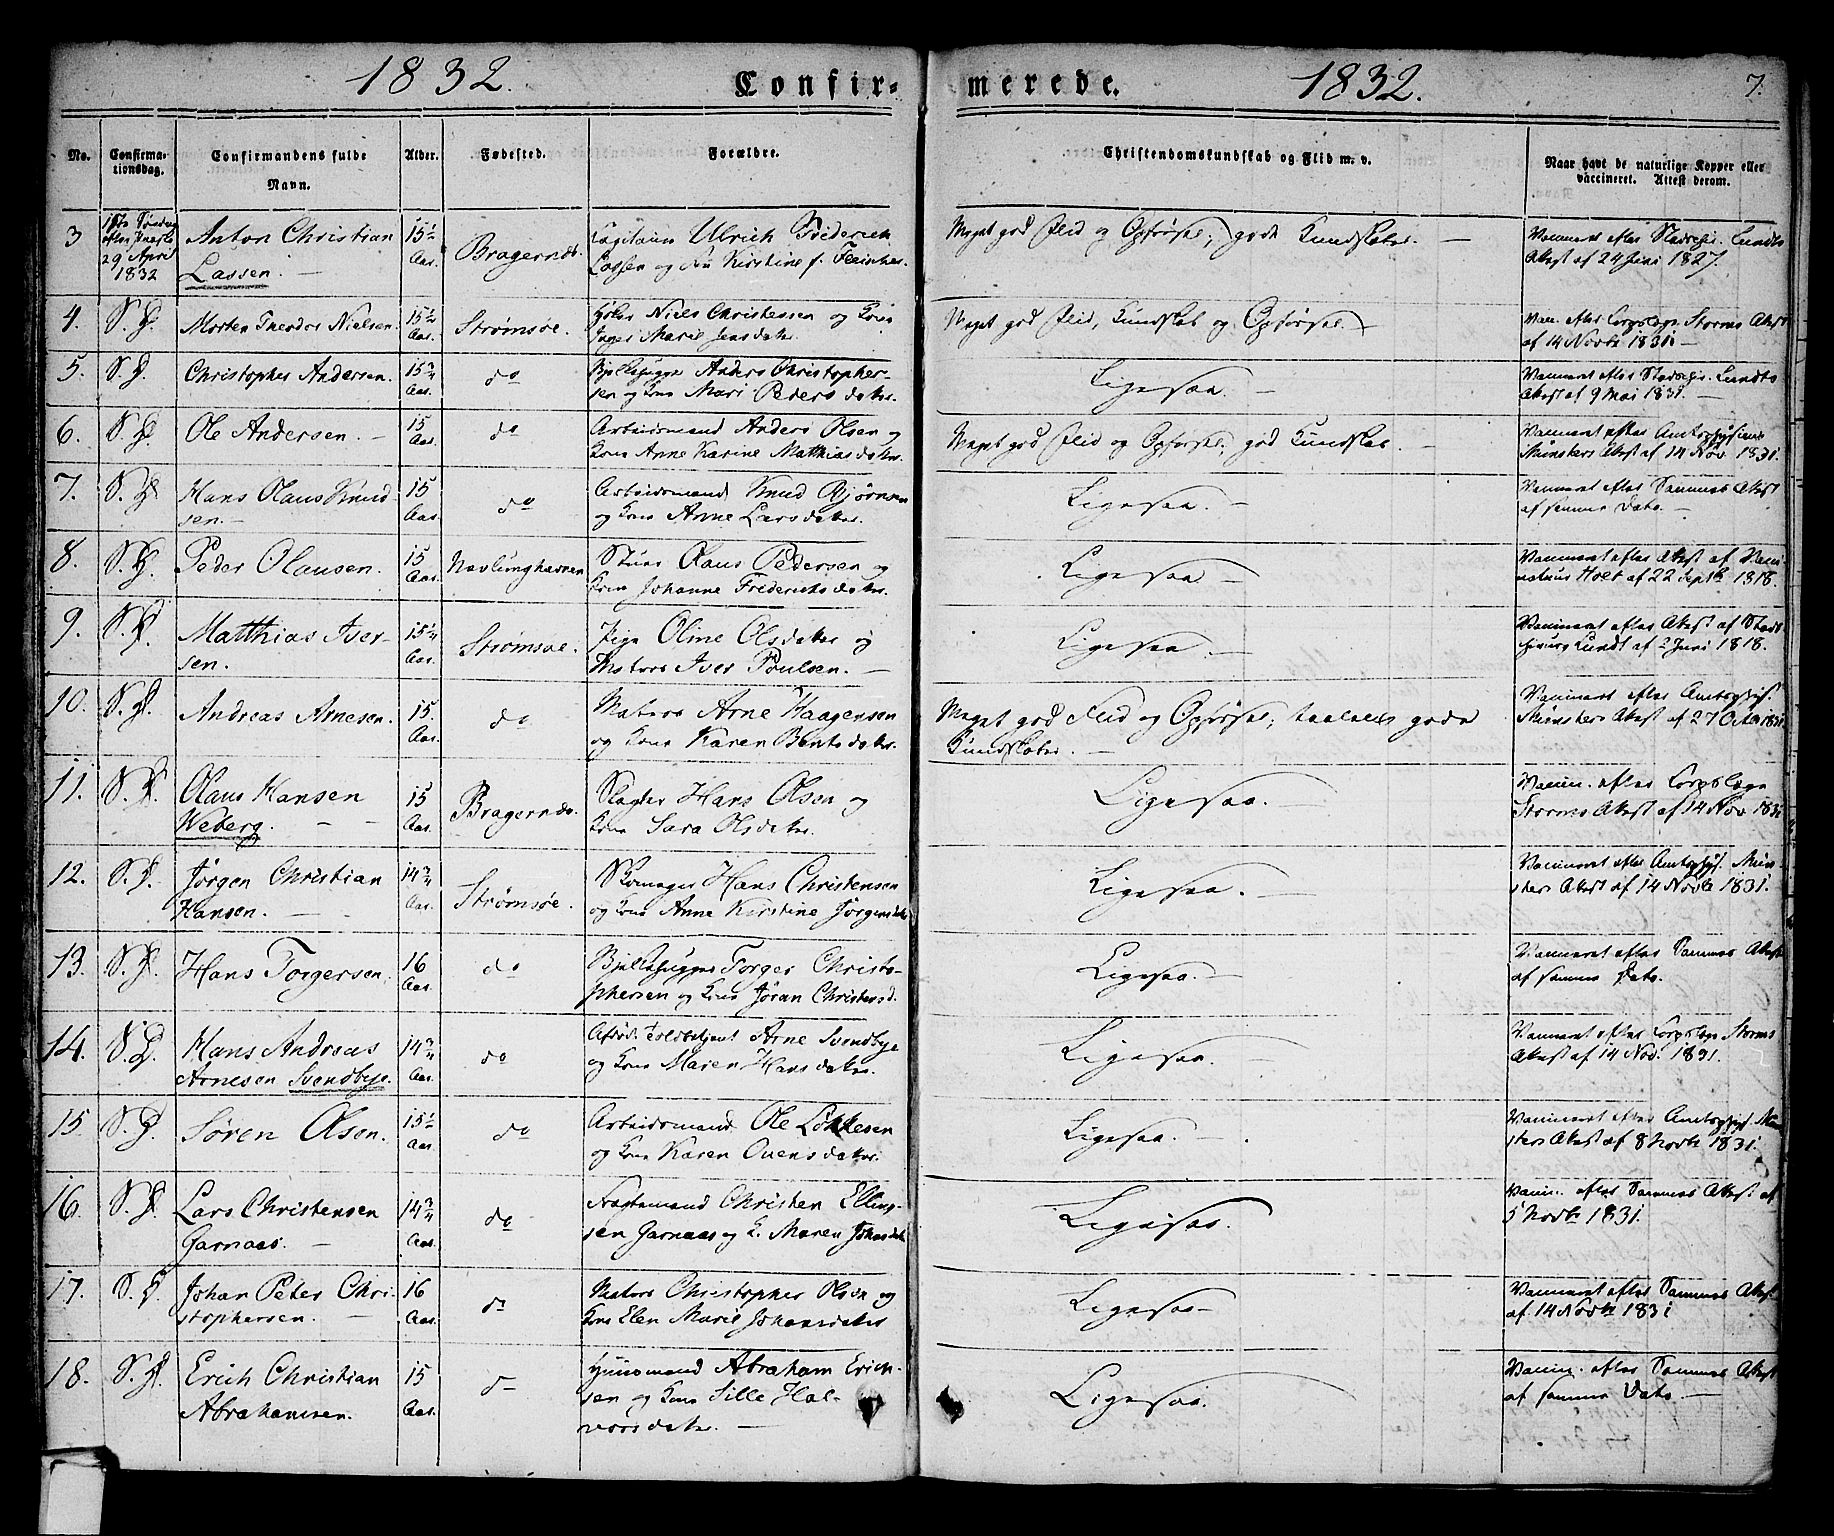 1832. Confir-
merede. 1832. 7.
No. Confirma-tionsdag. Confirmandens fulde Navn. Alder. Fødested. Forældre.
Christendomskundskab og Flid m. v. Naar havt de naturlige Kopper eller vaccineret. Attest derom.
3 1ste Søndag efter Paaske 29 April 1832
Anton Christian
Lassen. —
15½ Aar.
Bragernæs.
Capitain Ulrich Frederich
Lassen og Fru Kirstine f.
Meget god Flid og Opførsel; gode Kundskaber. —
Vaccineret efter Stadschir. Lundts
Attest af 24 Juni 1827.
4. S. D. Morten Theodor Nielsen. Aar. Strømsøe.
Niels Christensen og Kone
Inger Marie Jensdatter.
Meget god Flid, Kundskab og Opførsel. —
Vacc. efter Corpslæge Storms Attest
af 14 Novbr 1831. —
5. S. D. Christopher Andersen. 15¾ Aar. do
Anders Christopher-
sen og Kone Mari Pedersdatter.
Ligesaa. —
Vaccineret efter Stadschir. Lundts
Attest af 9 Mai 1831. —
6. S. D. Ole Andersen. — 15 Aar. do
Arbeidsmand Anders Olsen og
Kone Anne Karine Matthiasdatter.
Meget god Flid og Opførsel; god Kundskab. —
Vaccineret efter Amtsphysicus
Münsters Attest af 14 Nov 1831.
7. S. D. Hans Olaus Knud-
sen. — 15 Aar. do
Arbeidsmand Knud Bjørnsen
og Kone Anne Larsdatter.
Ligesaa. —
Vaccineret efter Sammes Attest
af samme Dato. —
8. S. D. Peder Olausen. 15 Aar. Nevlunghavnen
Olaus Pedersen og
Kone Johanne Frederichsdatter.
Ligesaa —
Vaccineret efter Attest af
Holt af 22 Septbr 1818.
9. S. D. Matthias Iver-
sen. 15¼ Aar. Strømsøe.
Pige Oline Olsdatter og
Matros Iver Poulsen. —
Ligesaa. —
Vaccineret efter Attest af Stads
chirurg Lundt af 2 Juni 1818.
10. S. D. Andreas Arnesen. 15. Aar. do
Matros Arne Haagensen
og Kone Karen Bentsdatter.
Meget god Flid og Opførsel; taalelig gode
Kundskaber. —
Vaccineret efter Amtsphys.
Münsters Attest af 27 Octbr 1831
11. S. D. Olaus Hansen
Weberg. — — 15 Aar. Bragernæs.
Slagter Hans Olsen og
Kone Sara Olsdatter.
Ligesaa. —
Vaccin. efter Corpslæge
Storms Attest af 14 Nov 1831
12. S. D. Jørgen Christian
Hansen. — 14¾ Aar. Strømsøe.
Skomager Hans Christensen
og Kone Anne Kirstine Jørgensdatter
Ligesaa. —
Vaccineret efter Amtsphys. Mün-
sters Attest af 14 Novbr 1831.
13. S. D. Hans Torgersen. 16 Aar. do
Torger Christo-
phersen og Kone Jøran Christensd.
Ligesaa. —
Vaccineret efter Sammes Attest
af samme Dato.
14. S. D. Hans Andreas
Arnesen Svendbye. 14¾ Aar. do
Afdød Toldbetjent Arne Svendbye
og Kone Maren Hansdatter.
Ligesaa.
Vaccineret efter Corpslæge Storms
Attest af 14 Nov. 1831.
15. S. D. Søren Olsen. 15½ Aar. do
Arbeidsmand Ole Løkkesen
og Kone Karen Ovensdatter.
Ligesaa. —
Vaccineret efter Amtsphys. Mün
sters Attest af 8 Novbr 1831.
16. S. D. Lars Christensen
Garnaas. — 14¾ Aar. do
Christen Elling-
sen Garnaas og K. Maren Johansdatter
Ligesaa.
Vaccin. efter Sammes Attest af
5 Novbr 1831.
17. S. D. Johan Peter Chri-
stophersen. — 16 Aar. do
Matros Christopher Olsen og
Kone Elen Marie Johansdatter
Ligesaa —
Vaccineret efter Sammes Attest
af 14 Novbr 1831
18. S. D. Erich Christian
Abrahamsen. 15 Aar. do
Huusmand Abraham Erich-
sen og Kone Sille Hal-
vorsdatter. —
Ligesaa.
Vaccin. efter Sammes Attest
af samme Dato. —